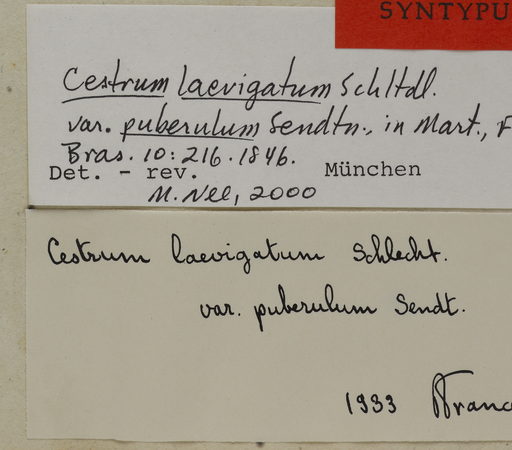 SYNTYPU
Cestrum laevigatum Schltdl.
var. puberulum Sendtn., in Mart., F
Bras. 10:216. 1846.
Det. - rev. München
M. Nee, 2000
Cestrum laevigatum Schlecht.
var. puberulum Sendt.
1933 Franc